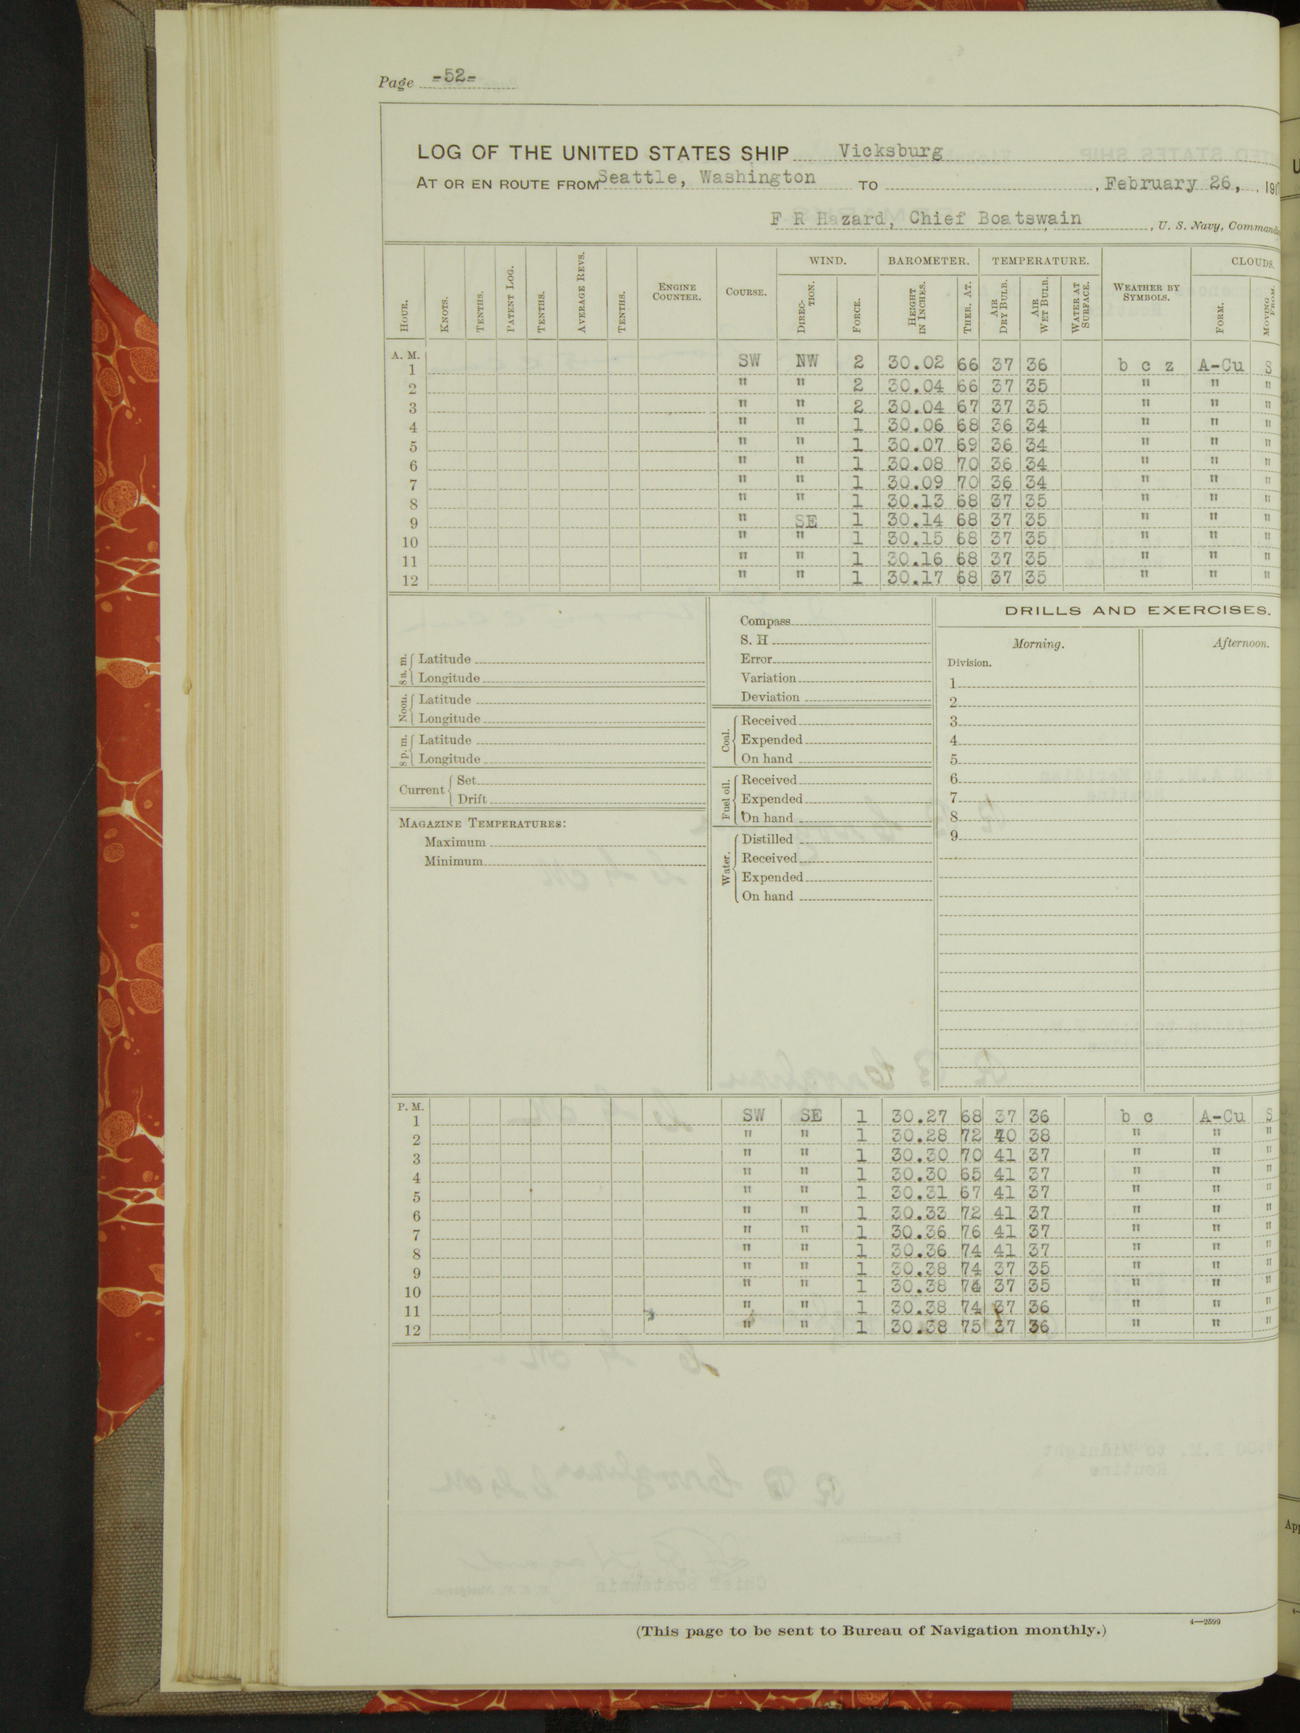 Page -52-
LOG OF THE UNITED STATES SHIP Vicksburg
AT OR EN ROUTE FROM Seattle, Washington TO , February 26, , 190
F R Hazard, Chief Boatswain , U. S. Navy, Command
WIND. BAROMETER. TEMPERATURE. CLOUDS.
HOUR. KNOTS. TENTHS. PATENT LOG. TENTHS. AVERAGE REVS. TENTHS. ENGINE COUNTER. COURSE. DIRECTION. FORCE. HEIGHT IN INCHES. THER. AT. AIR DRY BULB. AIR WET BULB. WATER AT SURFACE. WEATHER BY SYMBOLS. FORM. MOVING FROM.
A. M.
1 SW NW 2 30.02 66 37 36 b c z A-Cu S
2 " " 2 30.04 66 37 35 " " "
3 " " 2 30.04 67 37 35 " " "
4 " " 1 30.06 68 36 34 " " "
5 " " 1 30.07 69 36 34 " " "
6 " " 1 30.08 70 36 34 " " "
7 " " 1 30.09 70 36 34 " " "
8 " " 1 30.13 68 37 35 " " "
9 " SE 1 30.14 68 37 35 " " "
10 " " 1 30.15 68 37 35 " " "
11 " " 1 30.16 68 37 35 " " "
12 " " 1 30.17 68 37 35 " " "
8 a. m. Latitude
Longitude
Noon. Latitude
Longitude
8 p. m. Latitude
Longitude
Current Set
Drift
MAGAZINE TEMPERATURES:
Maximum
Minimum
Compass
S. H
Error
Variation
Deviation
Coal. Received
Expended
On hand
Fuel oil. Received
Expended
On hand
Water. Distilled
Received
Expended
On hand
DRILLS AND EXERCISES.
Morning. Afternoon.
Division.
1
2
3
4
5
6
7
8
9
P. M.
1 SW SE 1 30.27 68 37 36 b c A-Cu S
2 " " 1 30.28 72 40 38 " " "
3 " " 1 30.30 70 41 37 " " "
4 " " 1 30.30 65 41 37 " " "
5 " " 1 30.31 67 41 37 " " "
6 " " 1 30.33 72 41 37 " " "
7 " " 1 30.36 76 41 37 " " "
8 " " 1 30.36 74 41 37 " " "
9 " " 1 30.38 74 37 35 " " "
10 " " 1 30.38 74 37 35 " " "
11 " " 1 30.38 74 37 36 " " "
12 " " 1 30.38 75 37 36 " " "
4—2599
(This page to be sent to Bureau of Navigation monthly.)